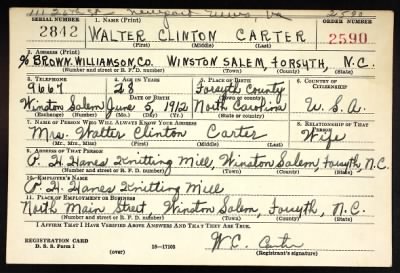 SERIAL NUMBER 1. NAME (Print) ORDER NUMBER
2842 WALTER CLINTON CARTER 2590
(First) (Middle) (Last)
2. ADDRESS (Print)
% BROWN. WILLIAMSON. CO. WINSTON SALEM, FORSYTH, N.C.
(Number and street or R. F. D. number) (Town) (County) (State)
3. TELEPHONE 4. AGE IN YEARS 5. PLACE OF BIRTH 6. COUNTRY OF CITIZENSHIP
9667 28 Forsyth County
DATE OF BIRTH (Town or county)
Winston Salem June 5, 1912 North Carolina U.S.A.
(Exchange) (Number) (Mo.) (Day) (Yr.) (State or country)
7. NAME OF PERSON WHO WILL ALWAYS KNOW YOUR ADDRESS 8. RELATIONSHIP OF THAT PERSON
Mrs. Walter Clinton Carter Wife
(Mr., Mrs., Miss) (First) (Middle) (Last)
9. ADDRESS OF THAT PERSON
P. H. Hanes Knitting Mill, Winston Salem, Forsyth, N.C.
(Number and street or R. F. D. number) (Town) (County) (State)
10. EMPLOYER'S NAME
P. H. Hanes Knitting Mill
11. PLACE OF EMPLOYMENT OR BUSINESS
North Main Street Winston Salem, Forsyth, N.C.
(Number and street or R. F. D. number) (Town) (County) (State)
I AFFIRM THAT I HAVE VERIFIED ABOVE ANSWERS AND THAT THEY ARE TRUE.
REGISTRATION CARD
D. S. S. Form 1 (over) 16-17105 W.C. Carter
(Registrant's signature)